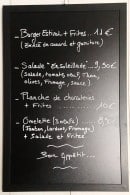 - Burger Estival + Frites... 11€
(Sauce au canard et garniture)
- Salade "Ensoleillade"...9,50€
(Salade, tomate, oeuf, Thon,
olives, Fromage, sauce)
- Planche de charcuteries
+ Frites... 10€
- Omelette (3 oeufs)... 8,50€
(Jambon, Lardons, Fromage)
+ Salade et Frites
Bon Appétit...